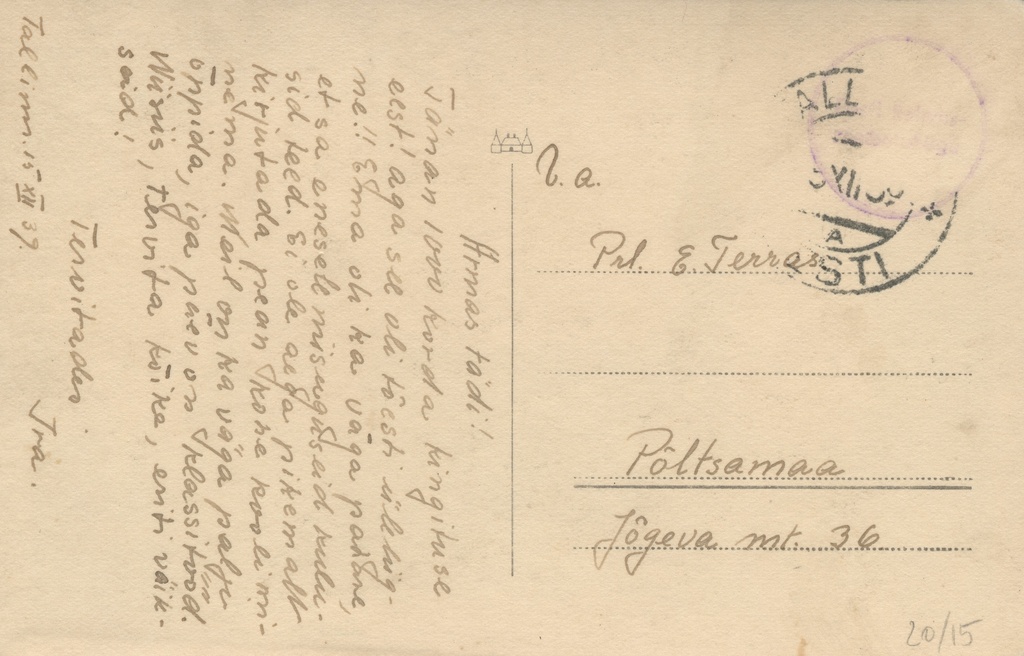 Tallinn. 15 XII 39.
Armas tädi!
Tänan 1000 korda kingituse
eest! aga see oli tõesti ülelüg-
ne!! Ema oli ka väga pahane,
et sa enesele misugused kulu-
sid teed. Ei ole aega pikemalt
kirjutada pean kohe kooli mi-
nema. Meil on ka väga palju
õppida, iga päev on klassitööd.
tervita kõike, eriti väik-
seid!
Tervitades
Ira.
V. a.
Prl. E. Terras
Põltsamaa
Jõgeva mt. 36
ALL
XII 39
A
STI
20/15